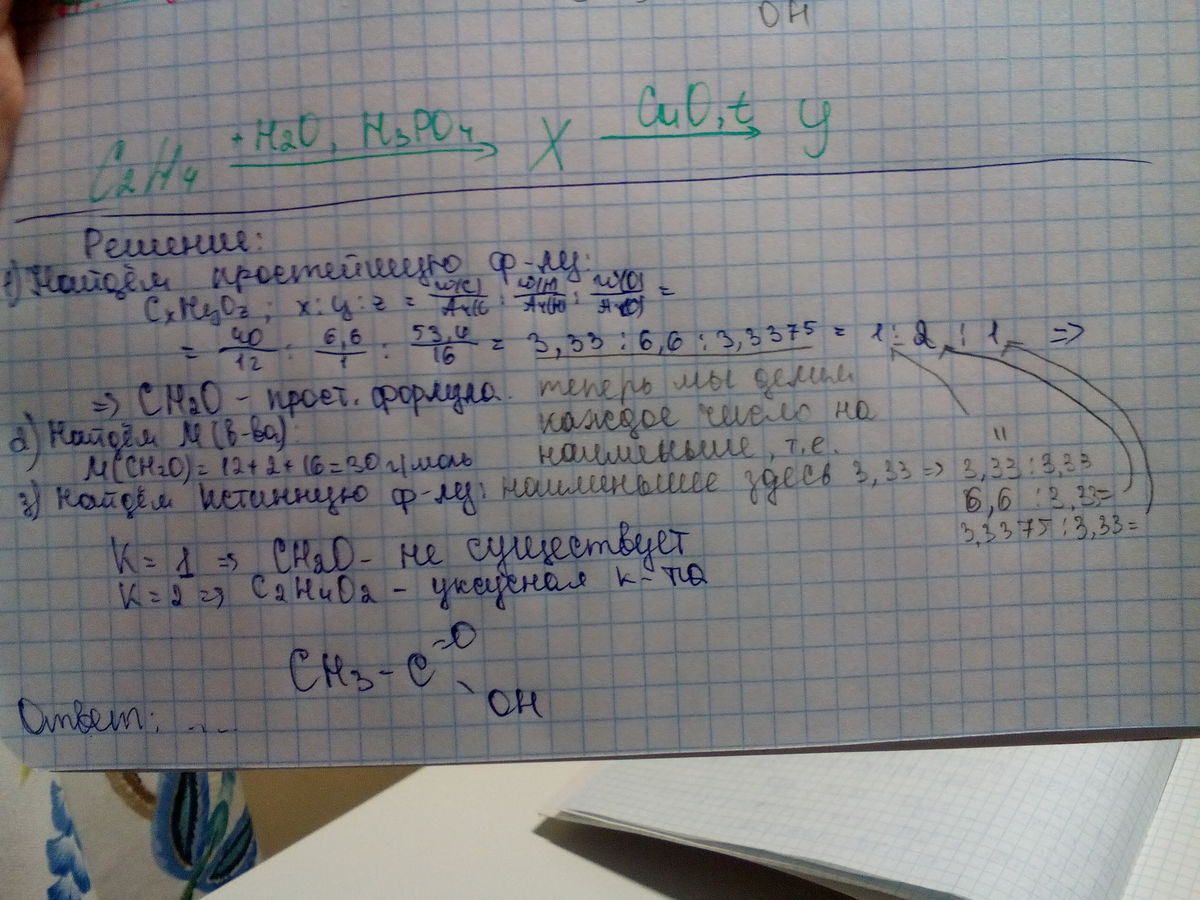 OH
C2H4 + H2O, H3PO4 → X CuO, t → y
Решение:
1) Найдём простейшую ф-лу:
CxHyOz; x : y : z = w(C)/Ar(C) : w(H)/Ar(H) : w(O)/Ar(O) =
= 40/12 : 6,6/1 : 53,4/16 = 3,33 : 6,6 : 3,3375 = 1 : 2 : 1 =>
=> CH2O - прост. формула. теперь мы делим
каждое число на
2) Найдём M(в-ва):
наименьше, т.е.
M(CH2O) = 12+2+16=30 г/моль
наименьшее здесь 3,33 => 3,33 : 3,33
3) Найдём истинную ф-лу:
6,6 : 3,33=
3,3375 : 3,33=
K = 1 => CH2O - не существует
K = 2 => C2H4O2 - уксусная к-та
CH3 - C =O
OH
Ответ: ....